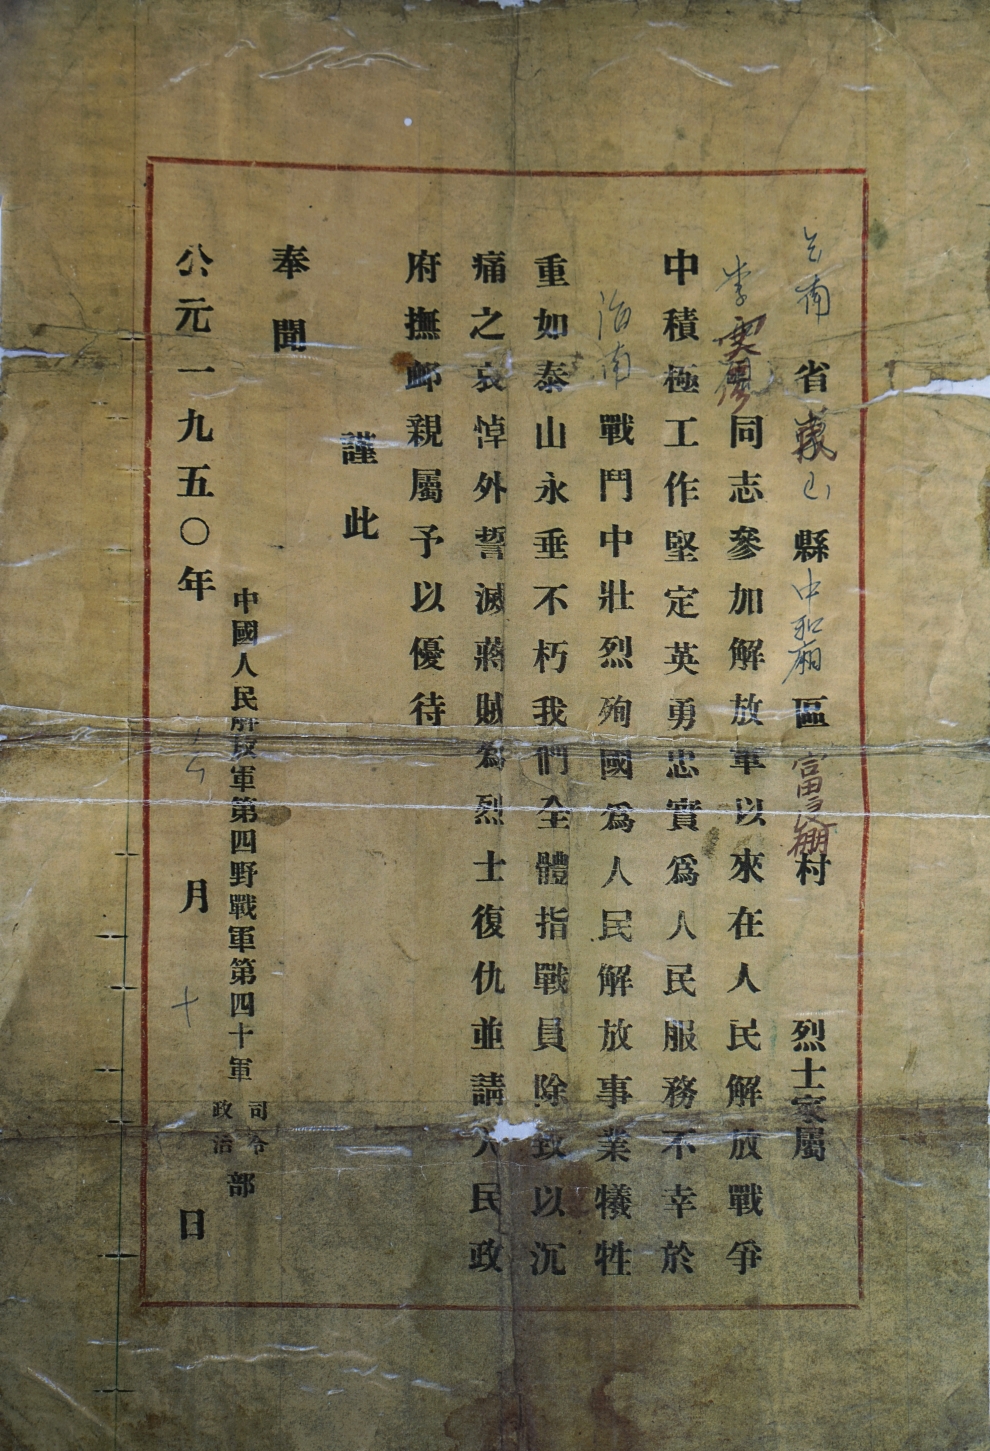 云南省蒙自縣中和廂區富良棚村烈士家屬
李雲陽同志參加解放軍以來在人民解放戰爭
中積極工作堅定英勇忠實爲人民服務不幸於
海南戰鬥中壯烈殉國爲人民解放事業犧牲
重如泰山永垂不朽我們全體指戰員除致以沉
痛之哀悼外誓滅蔣賊爲烈士復仇並請人民政
府撫邺親屬予以優待
謹此
奉聞
中國人民解放軍第四野戰軍第四十軍司令政治部
公元一九五〇年月十日